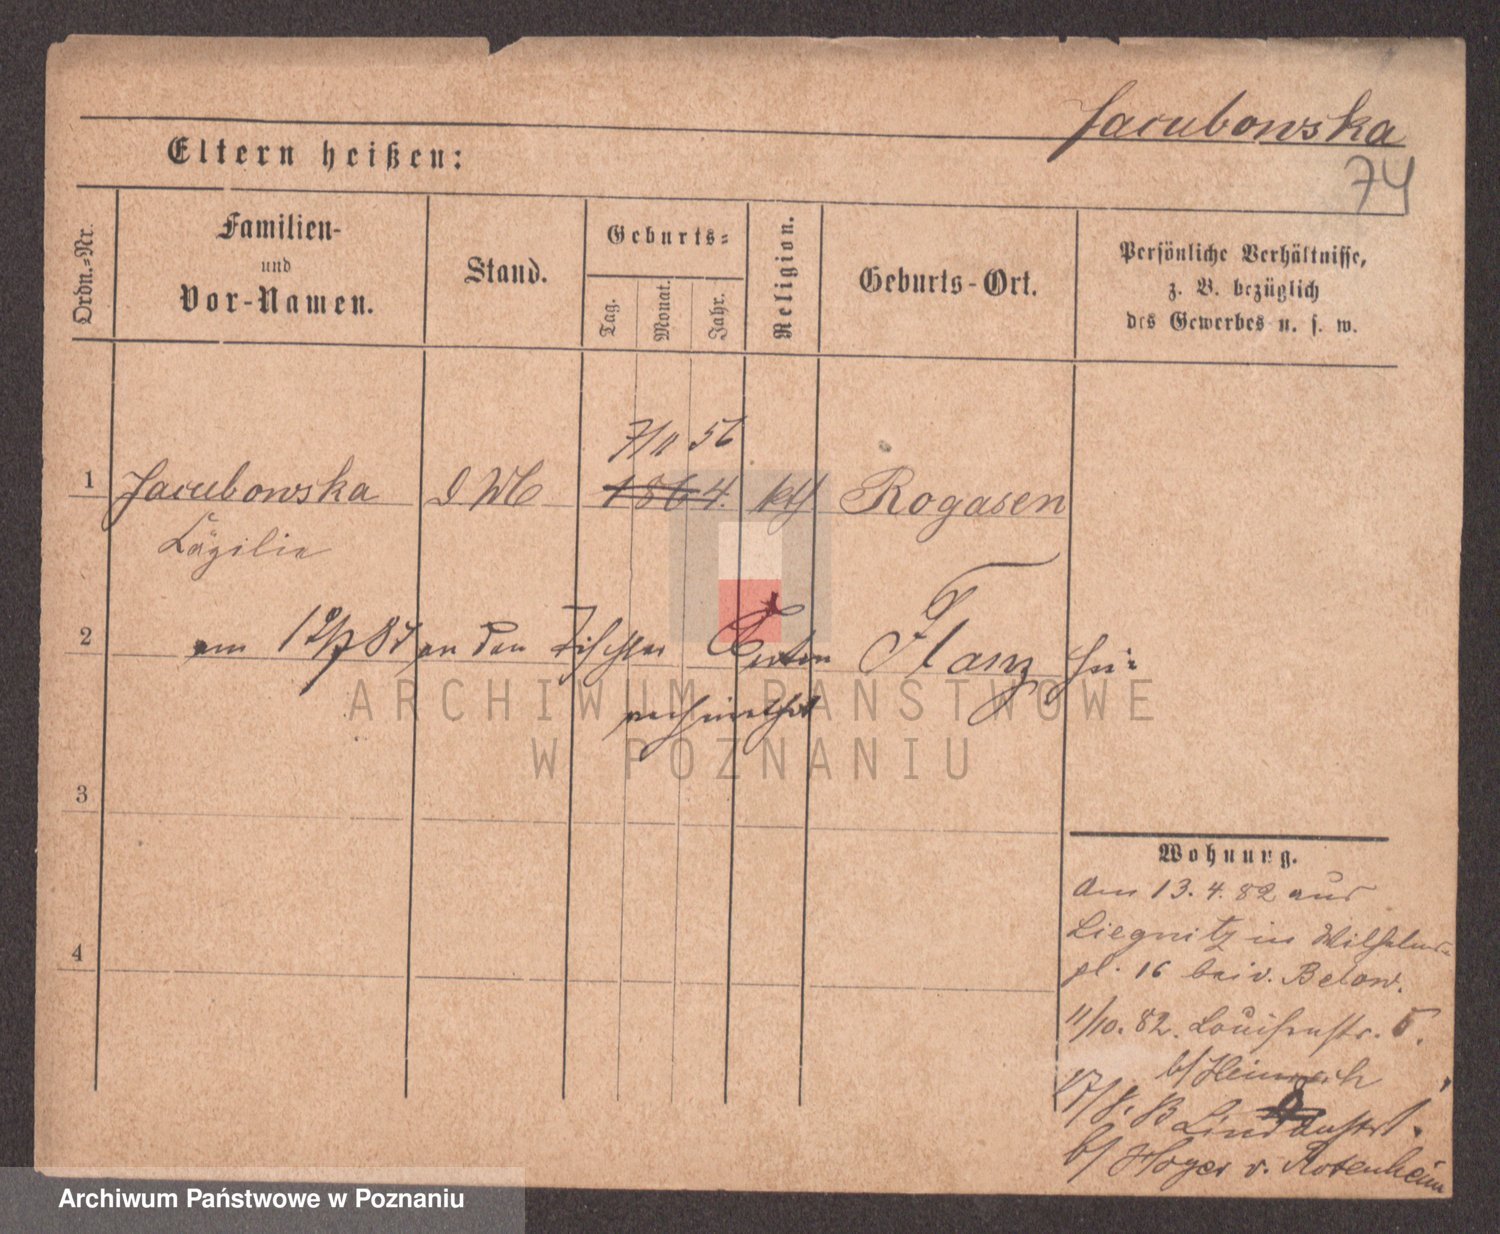 Jacubowska
74
Eltern heißen:
Ordn.=Nr.
Familien-
und
Vor-Namen.
Stand.
Geburts=
Tag.
Monat.
Jahr.
Religion.
Geburts-Ort.
Persönliche Verhältnisse,
z. B. bezüglich
des Gewerbes u. s. w.
7/11 56
1 Jacubowska 1864. kth Rogasen
Cäzilie
2 am 12/7 87 an den Tischler Anton Flanz hier
verheirathet
3
4
Wohnung.
Am 13.4.82 aus
Liegnitz in Wilhelms
pl. 16 bei v. Below.
11/10.82. Louisenstr. 5.
b/ Heinrich
17/8. Lindenstr 1.
b/ Hoyer v. Rotenheim
ARCHIWUM PAŃSTWOWE
W POZNANIU
Archiwum Państwowe w Poznaniu